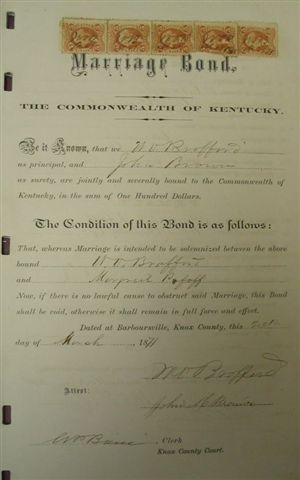 Marriage Bond.
THE COMMONWEALTH OF KENTUCKY.
Be it Known, that we W. V. Brafford
as principal, and John Brown
as surety, are jointly and severally bound to the Commonwealth of
Kentucky, in the sum of One Hundred Dollars.
The Condition of this Bond is as follows:
That, whereas Marriage is intended to be solemnized between the above
bound
and
Now, if there is no lawful cause to obstruct said Marriage, this Bond
shall be void, otherwise it shall remain in full force and effect.
Dated at Barboursville, Knox County, this
day of March 1871
Attest:
John M. Brown
, Clerk
Knox County Court.